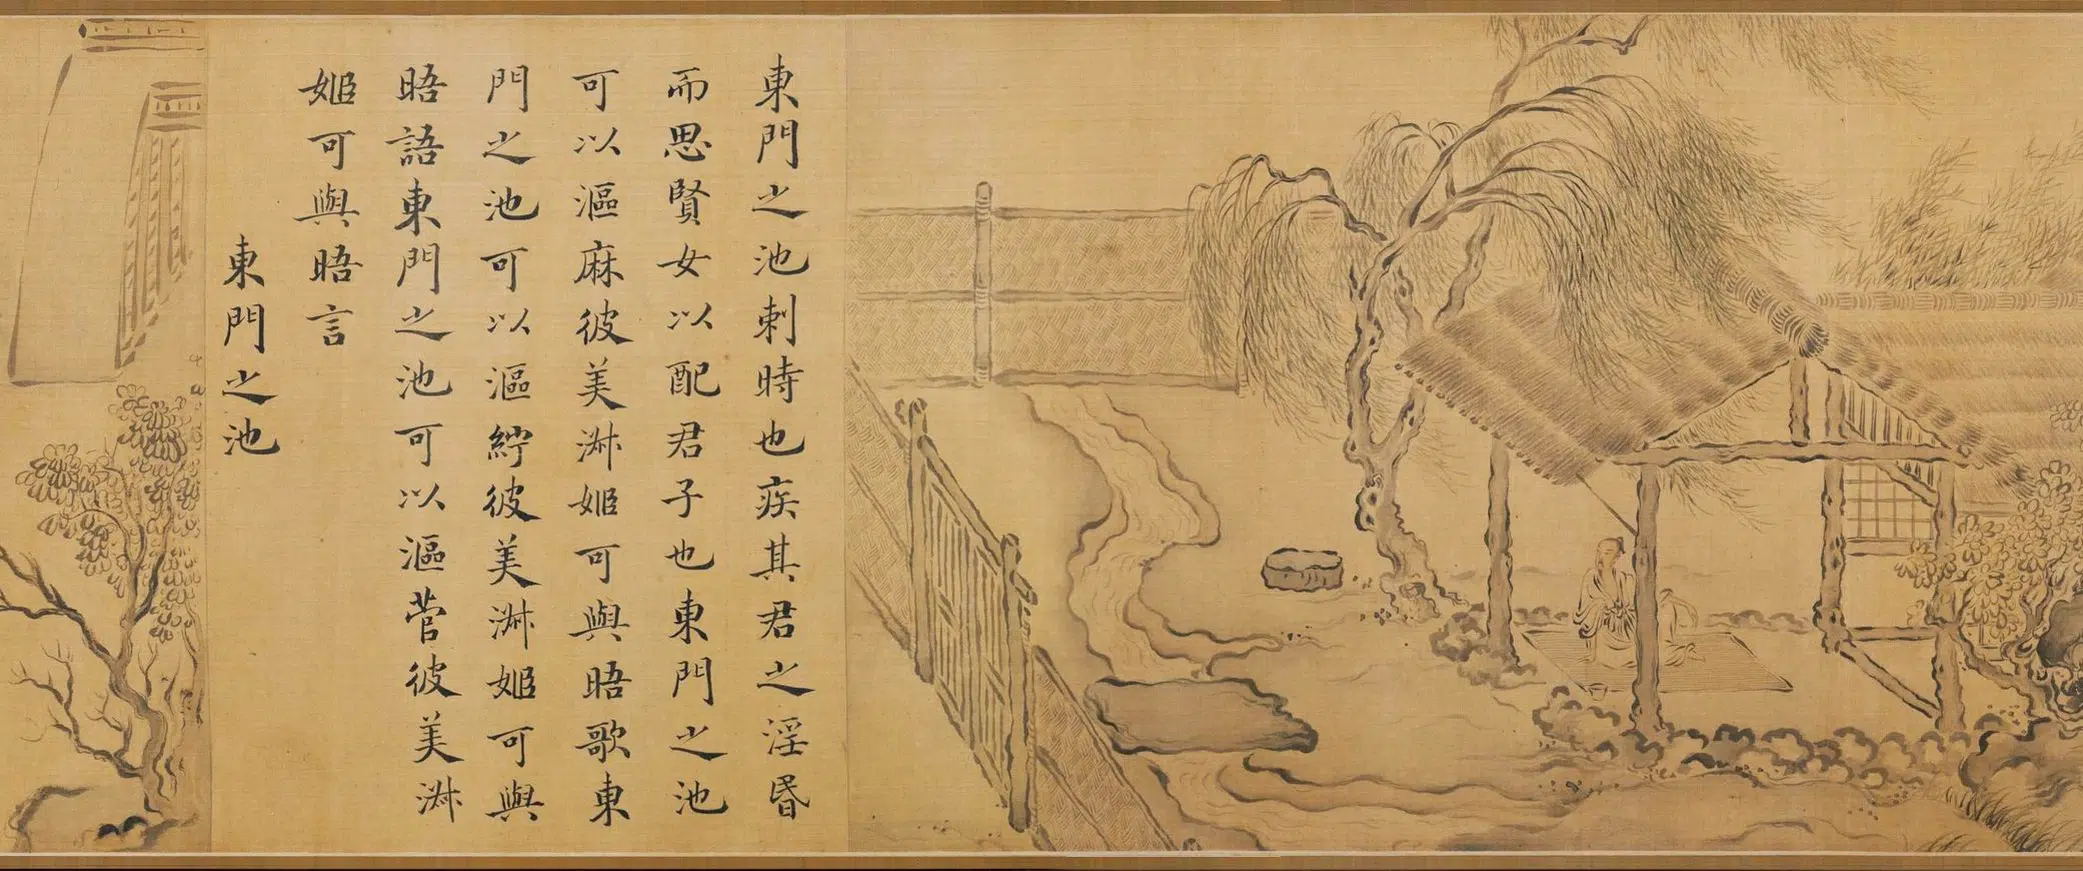 東門之池刺時也疾其君之淫昬
而思賢女以配君子也東門之池
可以漚麻彼美淑姬可與晤歌東
門之池可以漚紵彼美淑姬可與
晤語東門之池可以漚菅彼美淑
姬可與晤言
東門之池